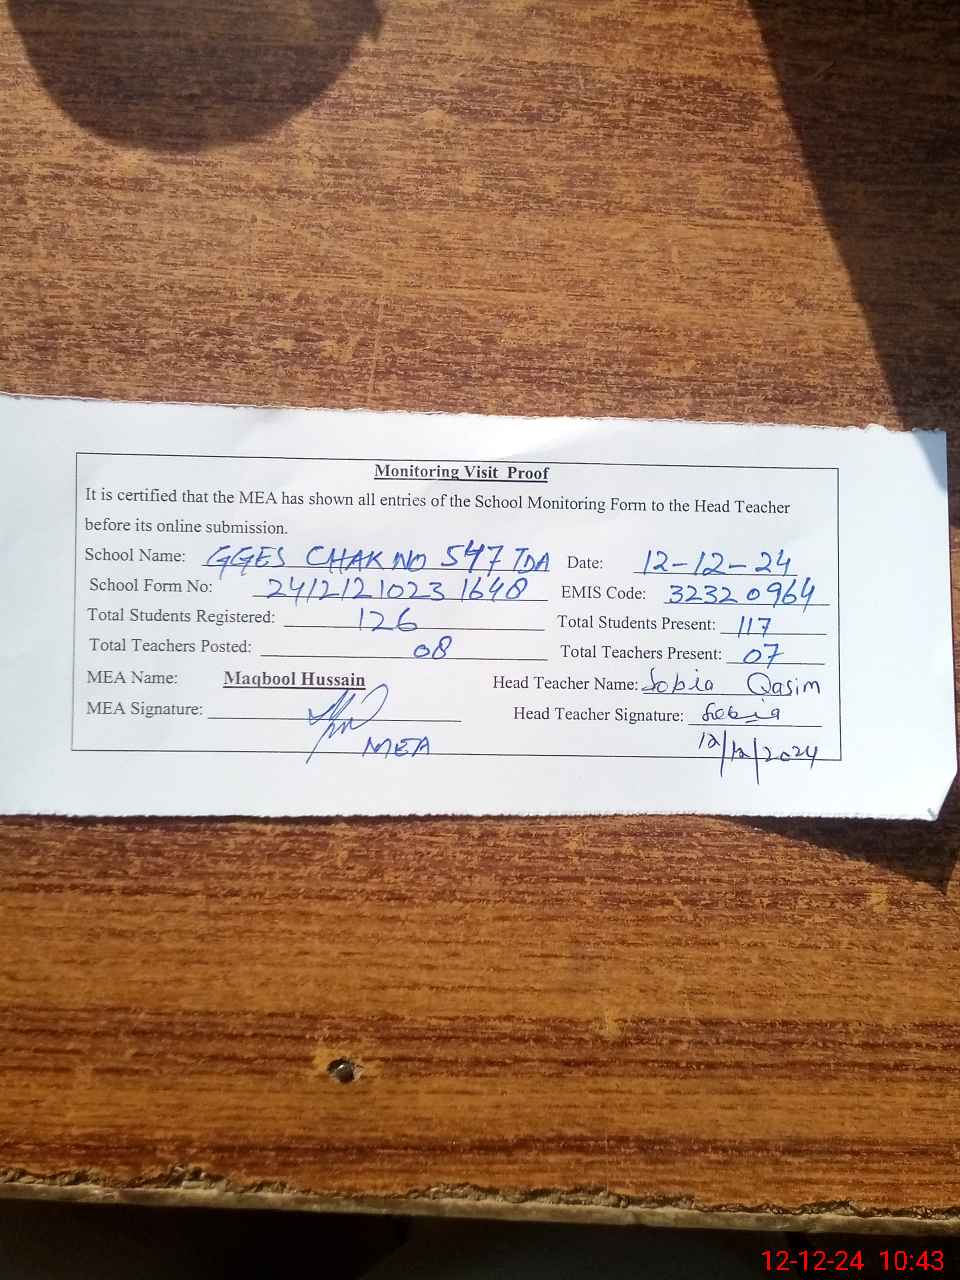 Monitoring Visit Proof
It is certified that the MEA has shown all entries of the School Monitoring Form to the Head Teacher
before its online submission.
School Name: GGES CHAK NO 547 TDA Date: 12-12-24
School Form No: 24121210231648 EMIS Code: 32320964
Total Students Registered: 126 Total Students Present: 117
Total Teachers Posted: 08 Total Teachers Present: 07
MEA Name: Maqbool Hussain Head Teacher Name: Sobia Qasim
MEA Signature: Head Teacher Signature: Sobia
MEA 12/12/2024
12-12-24 10:43